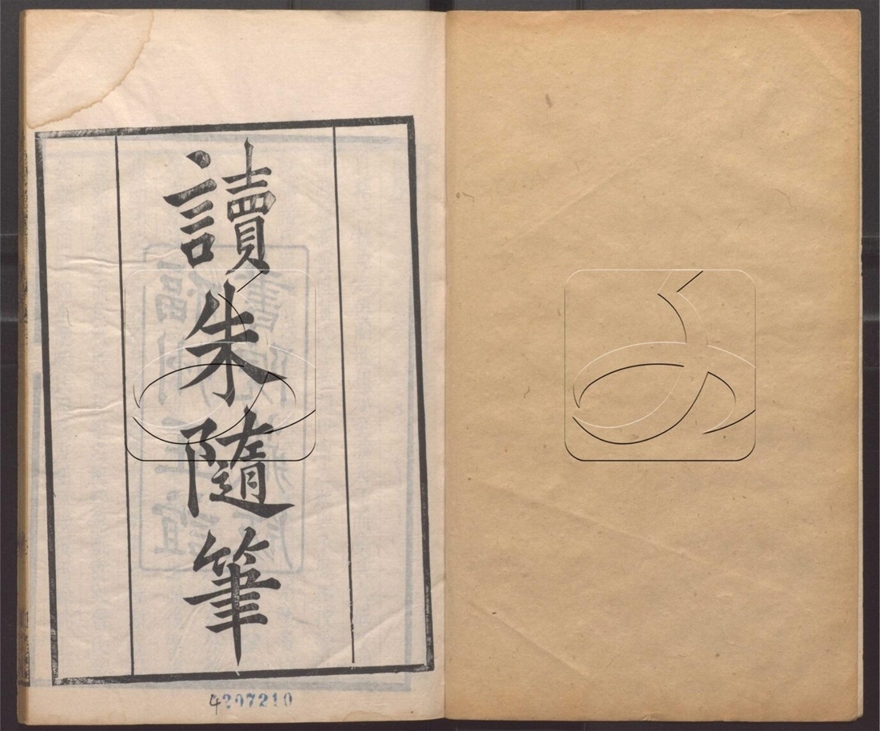 讀朱隨筆
4207210